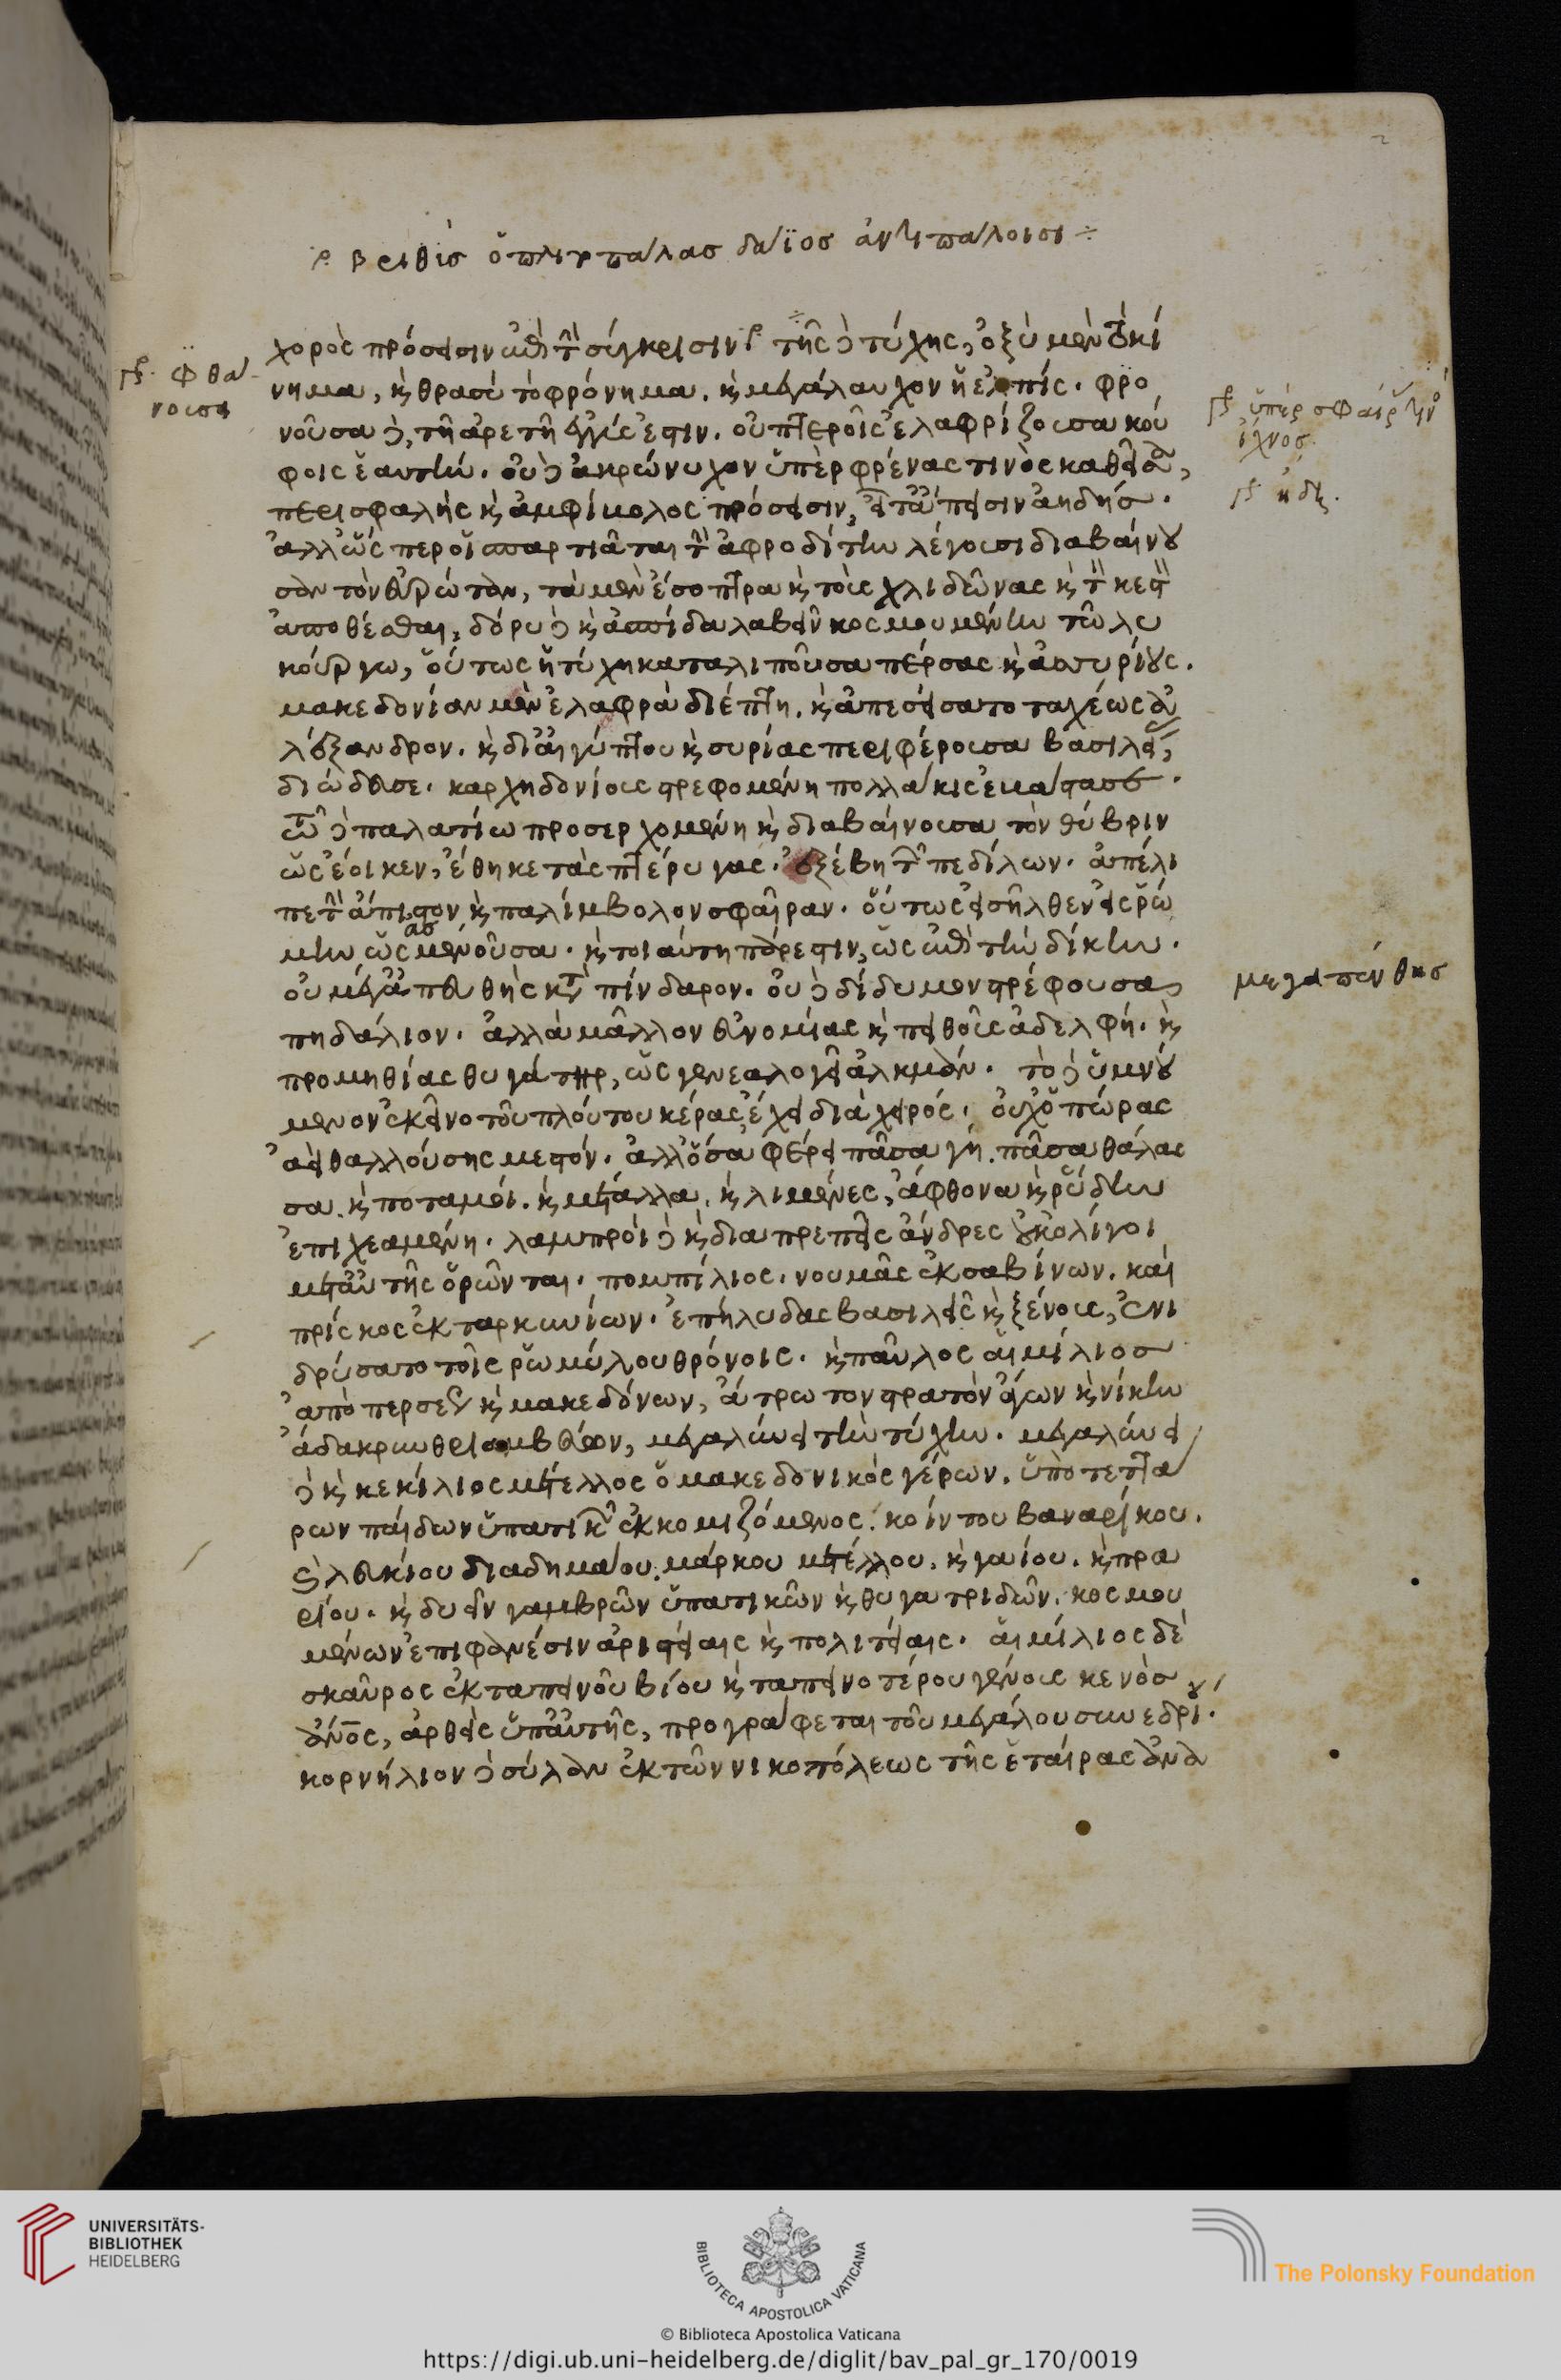 βριθὺς ὁπλιτοπάλας δάϊος ἀντιπάλοισι
χορὸς πρόσεισιν ἐπὶ τὴν σύγκρισιν. τῆς δὲ τύχης, ὀξὺ μὲν τὸ κί
γρ. φθά
νουσα
νημα, καὶ θρασὺ τὸ φρόνημα. καὶ μεγάλαυχον ἡ ἐλπίς. φρο
νοῦσα δὲ, τῇ ἀρετῇ ἐγγύς ἐστιν. οὐ πτεροῖς ἐλαφρίζουσα κού
γρ. ὑπὲρ σφαίρας τινὸς
ἴχνος
φοις ἑαυτήν. οὐδὲ ἀκρώνυχον ὑπὲρ φρένας τινὸς καθεῖσα,
περισφαλὴς καὶ ἀμφίκολος πρόσεισιν, εἶτα ἄπεισιν ἀηδής.
ἀλλ' ὥσπερ οἱ σπαρτιᾶται τὴν ἀφροδίτην λέγουσι διαβαίνου
σαν τὸν εὐρώταν, τὰ μὲν ἔσοπτρα καὶ τοὺς χλιδῶνας καὶ τὸν κεστὸν
ἀποθέσθαι, δόρυ δὲ καὶ ἀσπίδα λαβεῖν κοσμουμένην τῷ λυ
κούργω, οὕτως ἡ τύχη καταλιποῦσα πέρσας καὶ ἀσσυρίους.
μακεδονίαν μὲν ἐλαφρὰ διέπτη. καὶ ἀπεσείσατο ταχέως ἀ
λέξανδρον. καὶ δι' αἰγύπτου καὶ συρίας περιφέρουσα βασιλείας
διώδευσε. καρχηδονίους στρεφομένη πολλάκις ἐβάστασε.
τῷ δὲ παλατίω προσερχομένη καὶ διαβαίνουσα τὸν θύβριν
ὡς ἔοικεν, ἔθηκε τὰς πτέρυγας. ἐξέβη τῶν πεδίλων. ἀπέλι
πε τὴν ἄπιστον καὶ παλίμβολον σφαῖραν. οὕτως εἰσῆλθεν εἰς ῥώ
μην ὡς μενοῦσα. καὶ τοιαύτη πάρεστιν, ὡς ἐπὶ τὴν δίκην.
οὐ μεγα ἀπευθὴς κατὰ πίνδαρον. οὐδὲ δίδυμον στρέφουσα
μεγαπενθὴς
πηδάλιον. ἀλλὰ μᾶλλον εὐνομίας καὶ πειθοῦς ἀδελφή. καὶ
προμηθίας θυγάτηρ, ὡς γενεαλογεῖ ἀλκμάν. τὸ δὲ ὑμνού
μενον ἐκεῖνο τοῦ πλούτου κέρας ἔχει διὰ χειρός. οὐχ' ὀπώρας
ἀεὶ θαλλούσης μεστόν. ἀλλ' ὅσα φέρει πᾶσα γῆ. πᾶσα θάλασ
σα. καὶ ποταμοί. καὶ μέταλλα. καὶ λιμένες, ἄφθονα καὶ ῥύδην
ἐπιχεαμένη. λαμπροὶ δὲ καὶ διαπρεπεῖς ἄνδρες οὐκ ὀλίγοι
μετ' αὐτῆς ὁρῶνται. πομπίλιος. νουμᾶς ἐκ σαβίνων. καὶ
πρίσκος ἐκ ταρκυνίων. ἐπήλυδας βασιλεῖς καὶ ξένους, ἐνι
δρύσατο τοῖς ῥωμύλου θρόνοις. καὶ παῦλος αἰμίλιος
ἀπὸ περσέως καὶ μακεδόνων, ἄτρωτον στρατὸν ἄγων καὶ νίκην
ἄδακρυν θριαμβεύων, μεγαλύνει τὴν τύχην. μεγαλύνει
δὲ καὶ κεκίλιος μέτελλος ὁ μακεδονικὸς γέρων. ὑπὸ τεττά
ρων παίδων ὑπατικῶν ἐκκομιζόμενος. κοίντου βαναρίκου.
λευκίου διαδημάτου. μάρκου μετέλλου. καὶ γαίου. καὶ πρα
ρίου. καὶ δυεῖν γαμβρῶν ὑπατικῶν καὶ θυγατριδῶν. κοσμου
μένων ἐπιφανέσιν ἀριστείαις καὶ πολιτείαις. αἰμίλιος δὲ
σκαῦρος ἐκ ταπεινοῦ βίου καὶ ταπεινοτέρου γένους κενὸς
ἄνθρωπος, ἀρθεὶς ὑπ' αὐτῆς, προγράφεται τοῦ μεγάλου συνεδρίου.
κορνήλιον δὲ σύλαν ἐκ τῶν νικοπόλεως τῆς ἑταίρας ἀνα
UNIVERSITÄTS-
BIBLIOTHEK
HEIDELBERG
BIBLIOTECA APOSTOLICA VATICANA
The Polonsky Foundation
© Biblioteca Apostolica Vaticana
https://digi.ub.uni-heidelberg.de/diglit/bav_pal_gr_170/0019